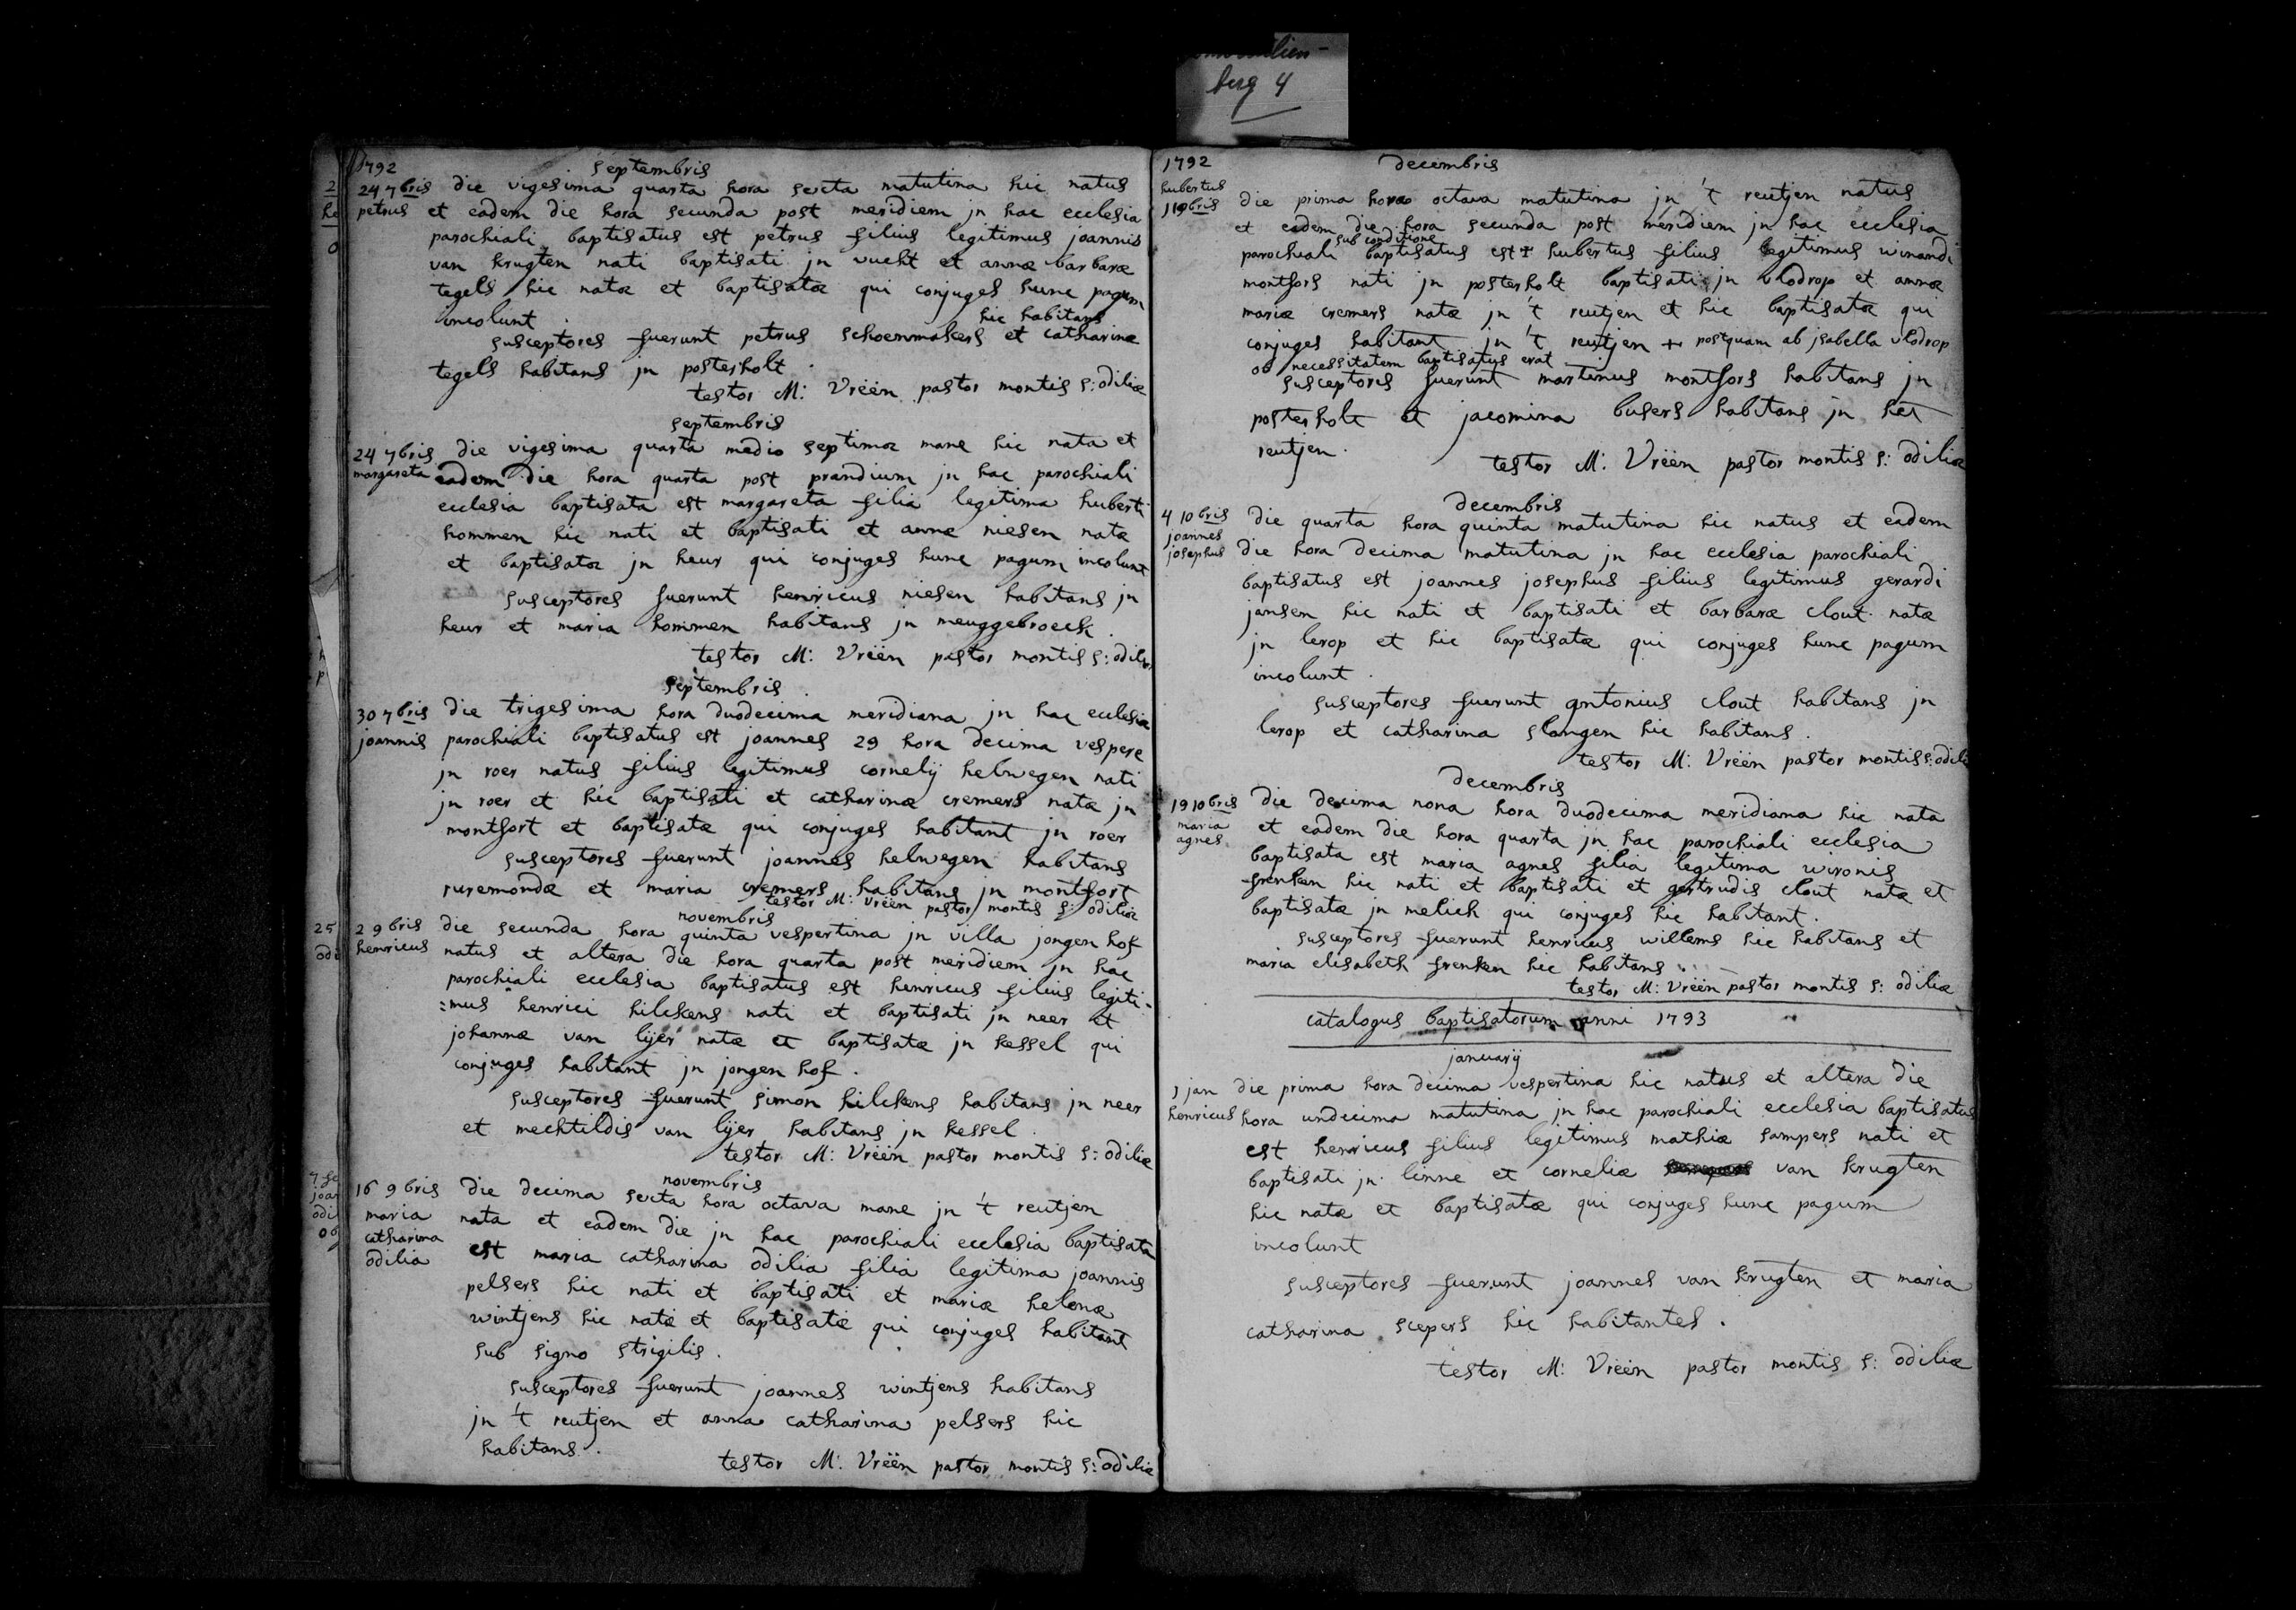 berg 4
1792 septembris
24 7bris die vigesima quarta hora sexta matutina hic natus
petrus et eadem die hora secunda post meridiem jn hac ecclesia
parochiali baptisatus est petrus filius legitimus joannis
van krugten nati baptisati jn vucht et annæ barbaræ
tegels hic natæ et baptisatæ qui conjuges hunc pagum
incolunt. hic habitans
susceptores fuerunt petrus schoenmakers et catharina
tegels habitans jn posterholt.
testor M: Vrëën pastor montis s: odiliæ
septembris
24 7bris die vigesima quarta medio septimæ mane hic nata et
margareta eadem die hora quarta post prandium jn hac parochiali
ecclesia baptisata est margareta filia legitima huberti
hommen hic nati et baptisati et annæ niesen natæ
et baptisatæ jn heur qui conjuges hunc pagum incolunt
susceptores fuerunt henricus niesen habitans jn
heur et maria hommen habitans jn meuggebroeck.
testor M: Vrëën pastor montis s: odiliæ
septembris
30 7bris die trigesima hora duodecima meridiana jn hac ecclesia
joannis parochiali baptisatus est joannes 29 hora decima vespere
jn roer natus filius legitimus cornelij helwegen nati
jn roer et hic baptisati et catharinæ cremers natæ jn
montfort et baptisatæ qui conjuges habitant jn roer
susceptores fuerunt joannes helwegen habitans
ruremondæ et maria cremers habitans jn montfort
testor M: vrëën pastor montis s: odiliæ
novembris
2 9bris die secunda hora quinta vespertina jn villa jongen hof
henricus natus et altera die hora quarta post meridiem jn hac
parochiali ecclesia baptisatus est henricus filius legiti-
:mus henrici hilckens nati et baptisati jn neer et
johannæ van lijer natæ et baptisatæ jn kessel qui
conjuges habitant jn jongen hof.
susceptores fuerunt simon hilckens habitans jn neer
et mechtildis van lijer habitans jn kessel.
testor M: Vrëën pastor montis s: odiliæ
novembris
16 9bris die decima sexta hora octava mane jn 't reutjen
maria nata et eadem die jn hac parochiali ecclesia baptisata
catharina est maria catharina odilia filia legitima joannis
odilia pelsers hic nati et baptisati et mariæ helenæ
wintjens hic natæ et baptisatæ qui conjuges habitant
sub signo strigilis.
susceptores fuerunt joannes wintjens habitans
jn 't reutjen et anna catharina pelsers hic
habitans.
testor M: Vrëën pastor montis s: odiliæ
1792 decembris
hubertus
1 10bris die prima hora octava matutina jn 't reutjen natus
et eadem die hora secunda post meridiem jn hac ecclesia
sub conditione
parochiali baptisatus est + hubertus filius legitimus winandi
montfors nati jn posterholt baptisati jn vlodrop et annæ
mariæ cremers natæ jn 't reutjen et hic baptisatæ qui
conjuges habitant jn 't reutjen + postquam ab jsabella vlodrop
ob necessitatem baptisatus erat
susceptores fuerunt martinus montfors habitans jn
posterholt et jacomina busers habitans jn het
reutjen.
testor M: Vrëën pastor montis s: odiliæ
decembris
4 10bris die quarta hora quinta matutina hic natus et eadem
joannes
josephus die hora decima matutina jn hac ecclesia parochiali
baptisatus est joannes josephus filius legitimus gerardi
jansen hic nati et baptisati et barbaræ clout natæ
jn lerop et hic baptisatæ qui conjuges hunc pagum
incolunt.
susceptores fuerunt antonius clout habitans jn
lerop et catharina slangen hic habitans.
testor M: Vrëën pastor montis s: odiliæ
decembris
19 10bris die decima nona hora duodecima meridiana hic nata
maria
agnes et eadem die hora quarta jn hac parochiali ecclesia
baptisata est maria agnes filia legitima wironis
frenken hic nati et baptisati et gertrudis clout natæ et
baptisatæ jn melick qui conjuges hic habitant.
susceptores fuerunt henricus willems hic habitans et
maria elisabeth frenken hic habitans.
testor M: Vrëën pastor montis s: odiliæ
catalogus baptisatorum anni 1793
januarij
1 jan die prima hora decima vespertina hic natus et altera die
henricus hora undecima matutina jn hac parochiali ecclesia baptisatus
est henricus filius legitimus mathiæ sampers nati et
baptisati jn linne et corneliæ van krugten
hic natæ et baptisatæ qui conjuges hunc pagum
incolunt
susceptores fuerunt joannes van krugten et maria
catharina scepers hic habitantes.
testor M: Vrëën pastor montis s: odiliæ